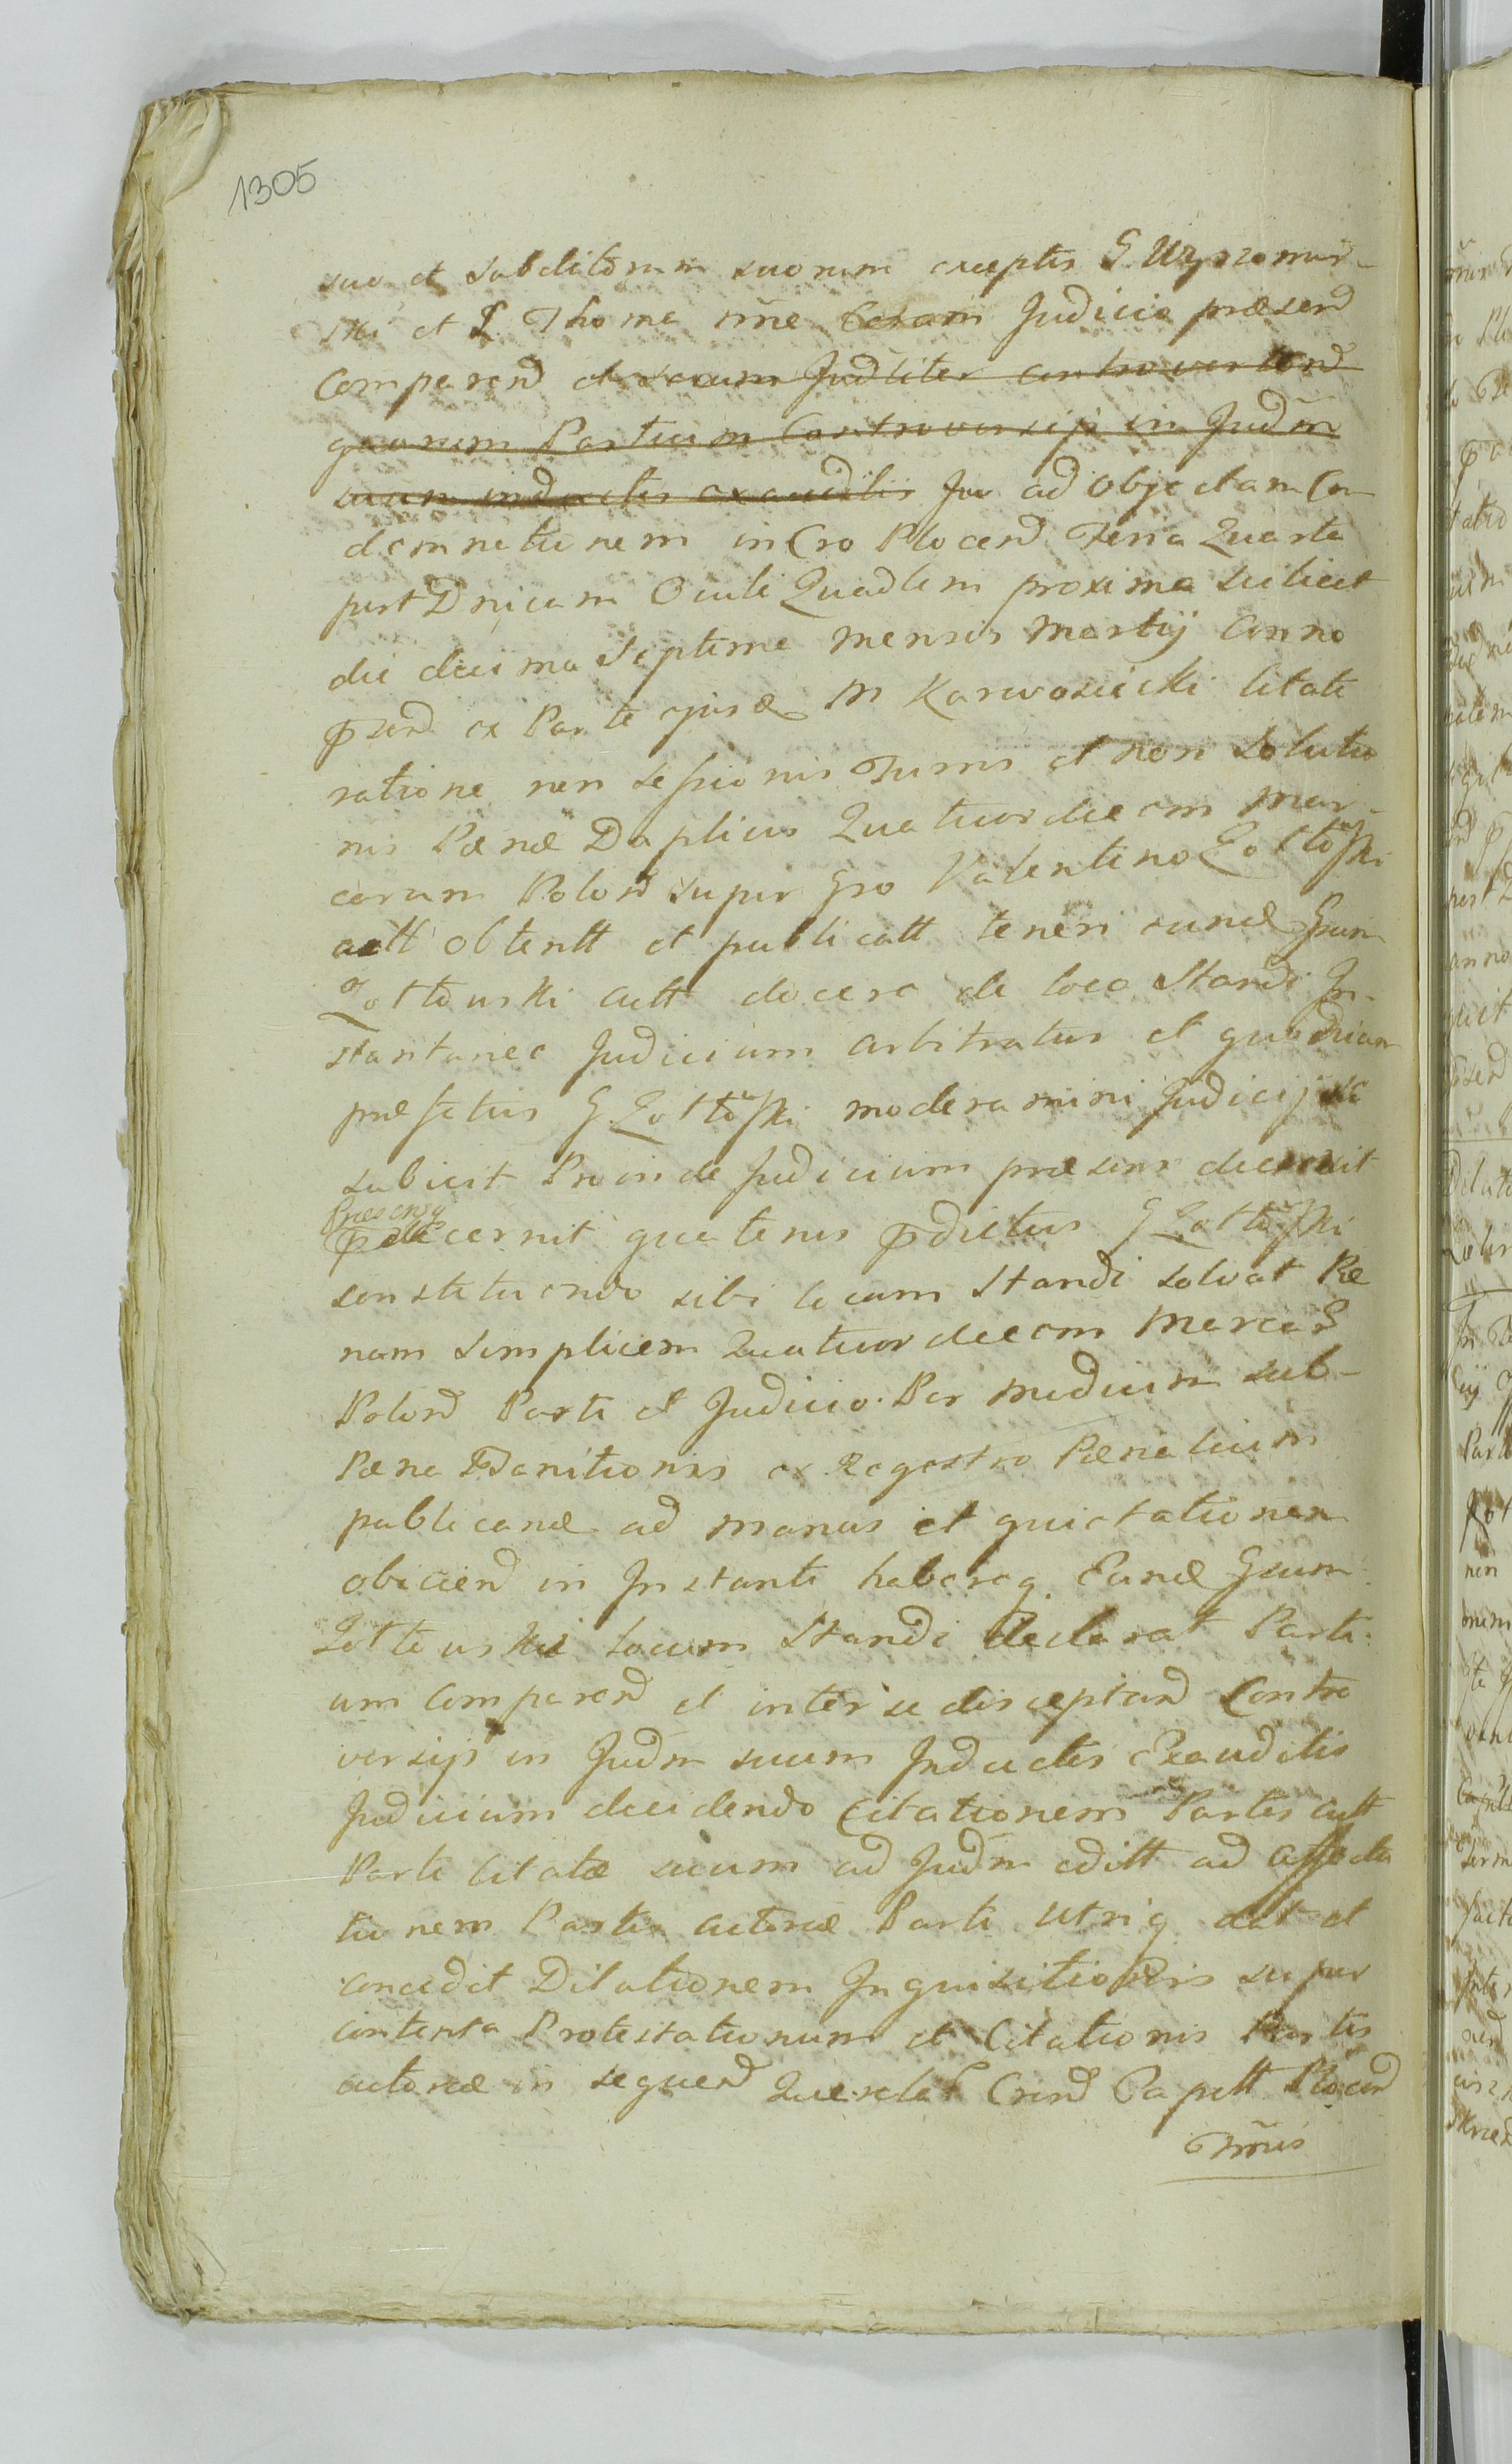 1305
suo et Subditorum suorum exceptis G. Wyszomir-
ski et L Thoma coram Judicio præsend
Comparend et secum Judliter controvertend
quarum Partium Controversijs in Judm
suum inductis exauditis Juv ad objectam Con
demnationem in Cro Plocen Feria Quarta
post Dnicam Oculi Quadlem proxima scilicet
die decima Septima mensis Martij Anno
psend ex Parte ejusd M Karwosiecki Citati
ratione non sessionis Turris et non Solutio
nis Pænæ Duplicis Quatuordecem Mar-
carum Polond super Gro Valentino Zottoski
actt obtentt et publicatt teneri eund Grum
Zottowski actt docere de loco Standi In-
stantanee Judicium arbitratur et quoniam
præfatus G Zottoski moderamini Judicij se
subicit Proinde Judicium præsens decrevit
Præsensq
decernit quatenus pdictus G Zottoski
constituendo sibi locum Standi solvat Pæ
nam Simplicem Quatuordecem Marcar
Polond Parti et Judicio Per medium sub
Pæna Banitionis ex Regestro Pænalium
publicand ad manus et quietationem
obiciend in Instanti habereq Eund Grum
Zottowski locum Standi declarat Parti
um Comparend et inter se disceptand Contro
versijs in Judm suum Inductis Exauditis
Judicium decidendo Citationem Partis actt
Parti Citatæ suum ad Judm editt ad affecta
tionem Partis actoreæ Parti Utriq dat et
concedit Dilationem Inquisitionis super
contenta Protestationum et Citationis Partis
actoreæ in sequend Querelar Crend Capitt Plocend
Tmnis